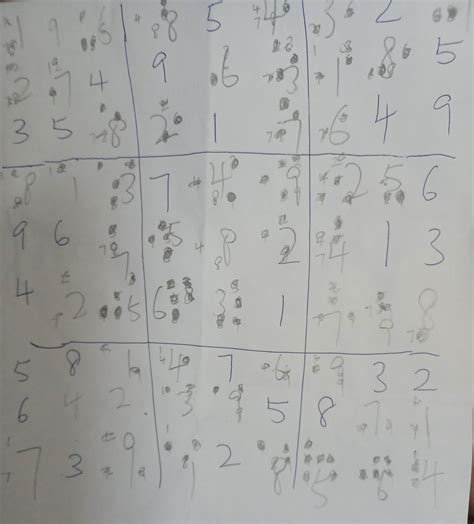 1 9 6 8 5 4 3 2
2 7 4 9 6 3 1 8 5
3 5 8 2 1 7 6 4 9
8 1 3 7 4 9 2 5 6
9 6 7 5 8 2 4 1 3
4 2 5 6 3 1 7 9 8
5 8 1 4 7 6 9 3 2
6 4 2 3 9 5 8 7 1
7 3 9 1 2 8 5 6 4